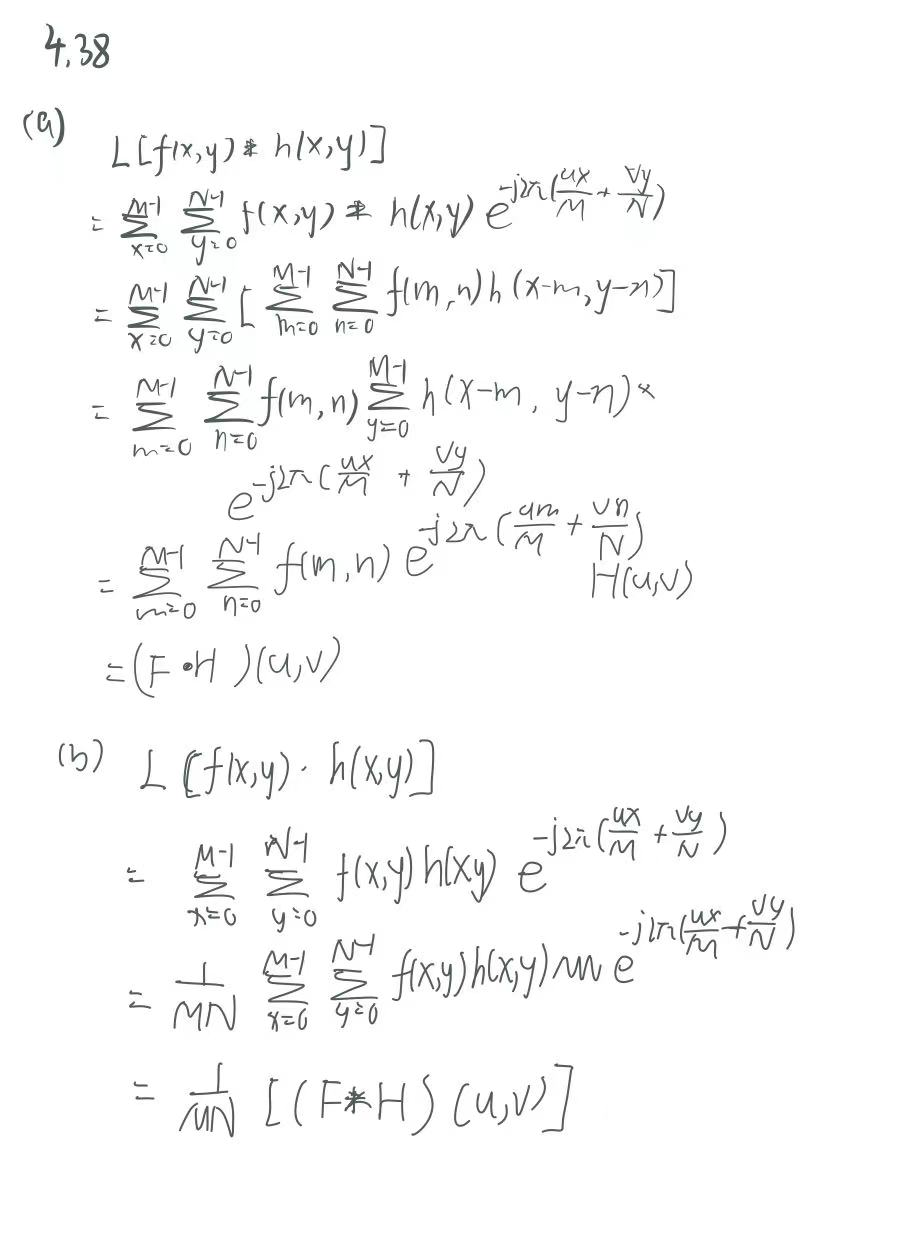 4.38
(a)
L[f(x,y) * h(x,y)]
= \sum_{x=0}^{M-1} \sum_{y=0}^{N-1} f(x,y) * h(x,y) e^{-j2π(\frac{ux}{M} + \frac{vy}{N})}
= \sum_{x=0}^{M-1} \sum_{y=0}^{N-1} [ \sum_{m=0}^{M-1} \sum_{n=0}^{N-1} f(m,n) h(x-m, y-n)]
= \sum_{m=0}^{M-1} \sum_{n=0}^{N-1} f(m,n) \sum_{y=0}^{M-1} h(x-m, y-n) *
e^{-j2π(\frac{ux}{M} + \frac{vy}{N})}
= \sum_{m=0}^{M-1} \sum_{n=0}^{N-1} f(m,n) e^{-j2π(\frac{um}{M} + \frac{vn}{N})}
H(u,v)
= (F • H)(u,v)
(b) L[f(x,y) · h(x,y)]
= \sum_{x=0}^{M-1} \sum_{y=0}^{N-1} f(x,y) h(xy) e^{-j2π(\frac{ux}{M} + \frac{vy}{N})}
= \frac{1}{MN} \sum_{x=0}^{M-1} \sum_{y=0}^{N-1} f(x,y) h(x,y) e^{-j2π(\frac{ux}{M} + \frac{vy}{N})}
= \frac{1}{MN} [(F * H)(u,v)]